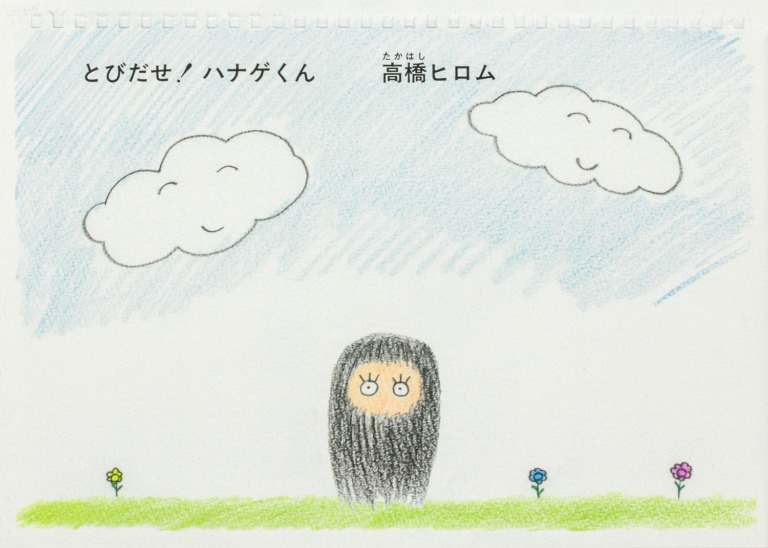 とびだせ！ ハナゲくん 高橋ヒロム
たかはし